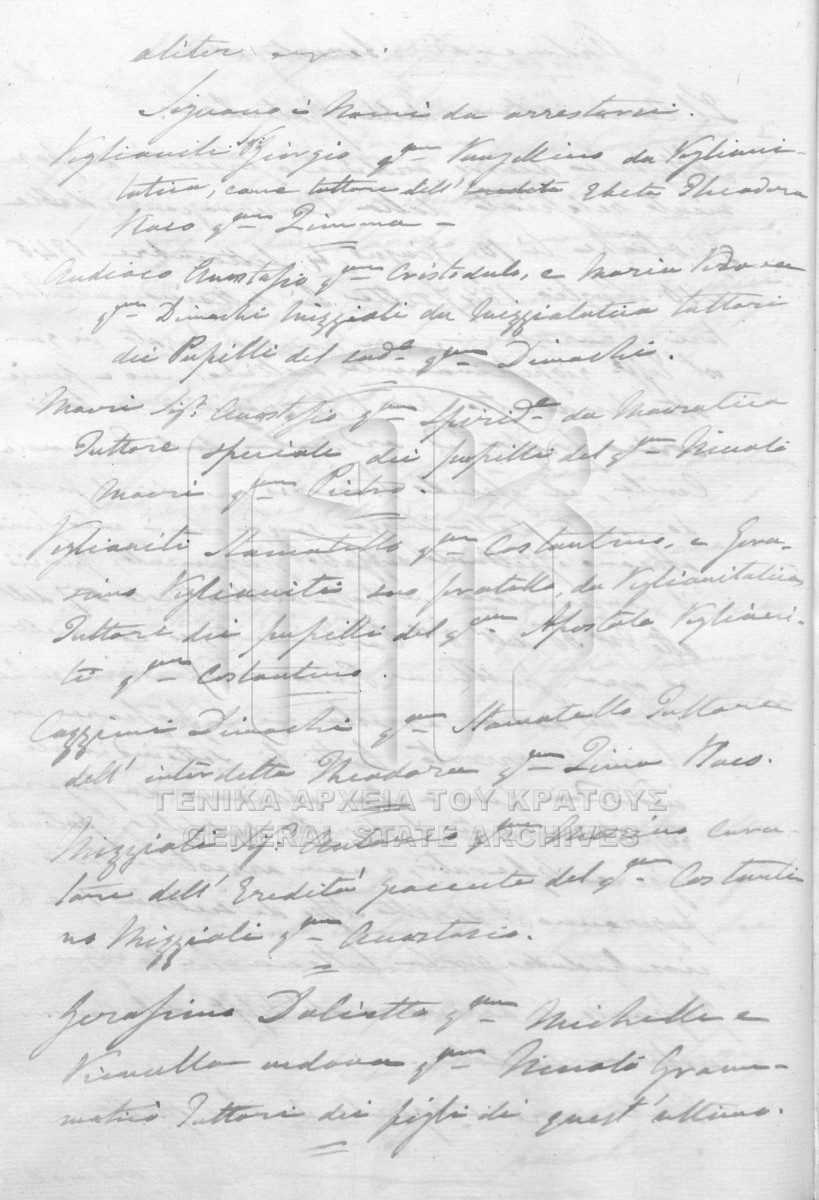 aliter
Seguono i Nomi da arrestarsi.
Viglianiti Sigr Giorgio qm Vangelino da Vigliani-
tatica, come tuttore dell' Ebete Theodora
Raco qm Zimma –
Andiaco Anastasio qm Cristodulo, e Maria Vedova
qm Dimachi Mizziali da Mizzialatica tuttori
dei Pupilli del sudo qm Dimachi.
Mavri Sigr Anastasio qm Spiride da Mavratica
Tuttore speciale dei pupilli del qm Nicolò
Mavri qm Pietro.
Viglianiti Stamatello qm Costantino, e Gera-
simo Viglianiti suo fratello, da Viglianitatica
Tuttori dei pupilli del qm Apostolo Viglianiti-
ti qm Costantino.
Cazzimi Dimachi qm Stamatello Tuttore
dell' interdetta Theodora qm Zima Raco.
ΓΕΝΙΚΑ ΑΡΧΕΙΑ ΤΟΥ ΚΡΑΤΟΥΣ
GENERAL STATE ARCHIVES
Mizziali Sigr Antonio qm cura-
tore dell' Eredità giacente del qm Costanti
no Mizziali qm Anastasio.
Gerasimo Dalietto qm Michelle e
vedova qm Nicolò Gram-
maticò Tuttori dei figli di quest' ultimo.